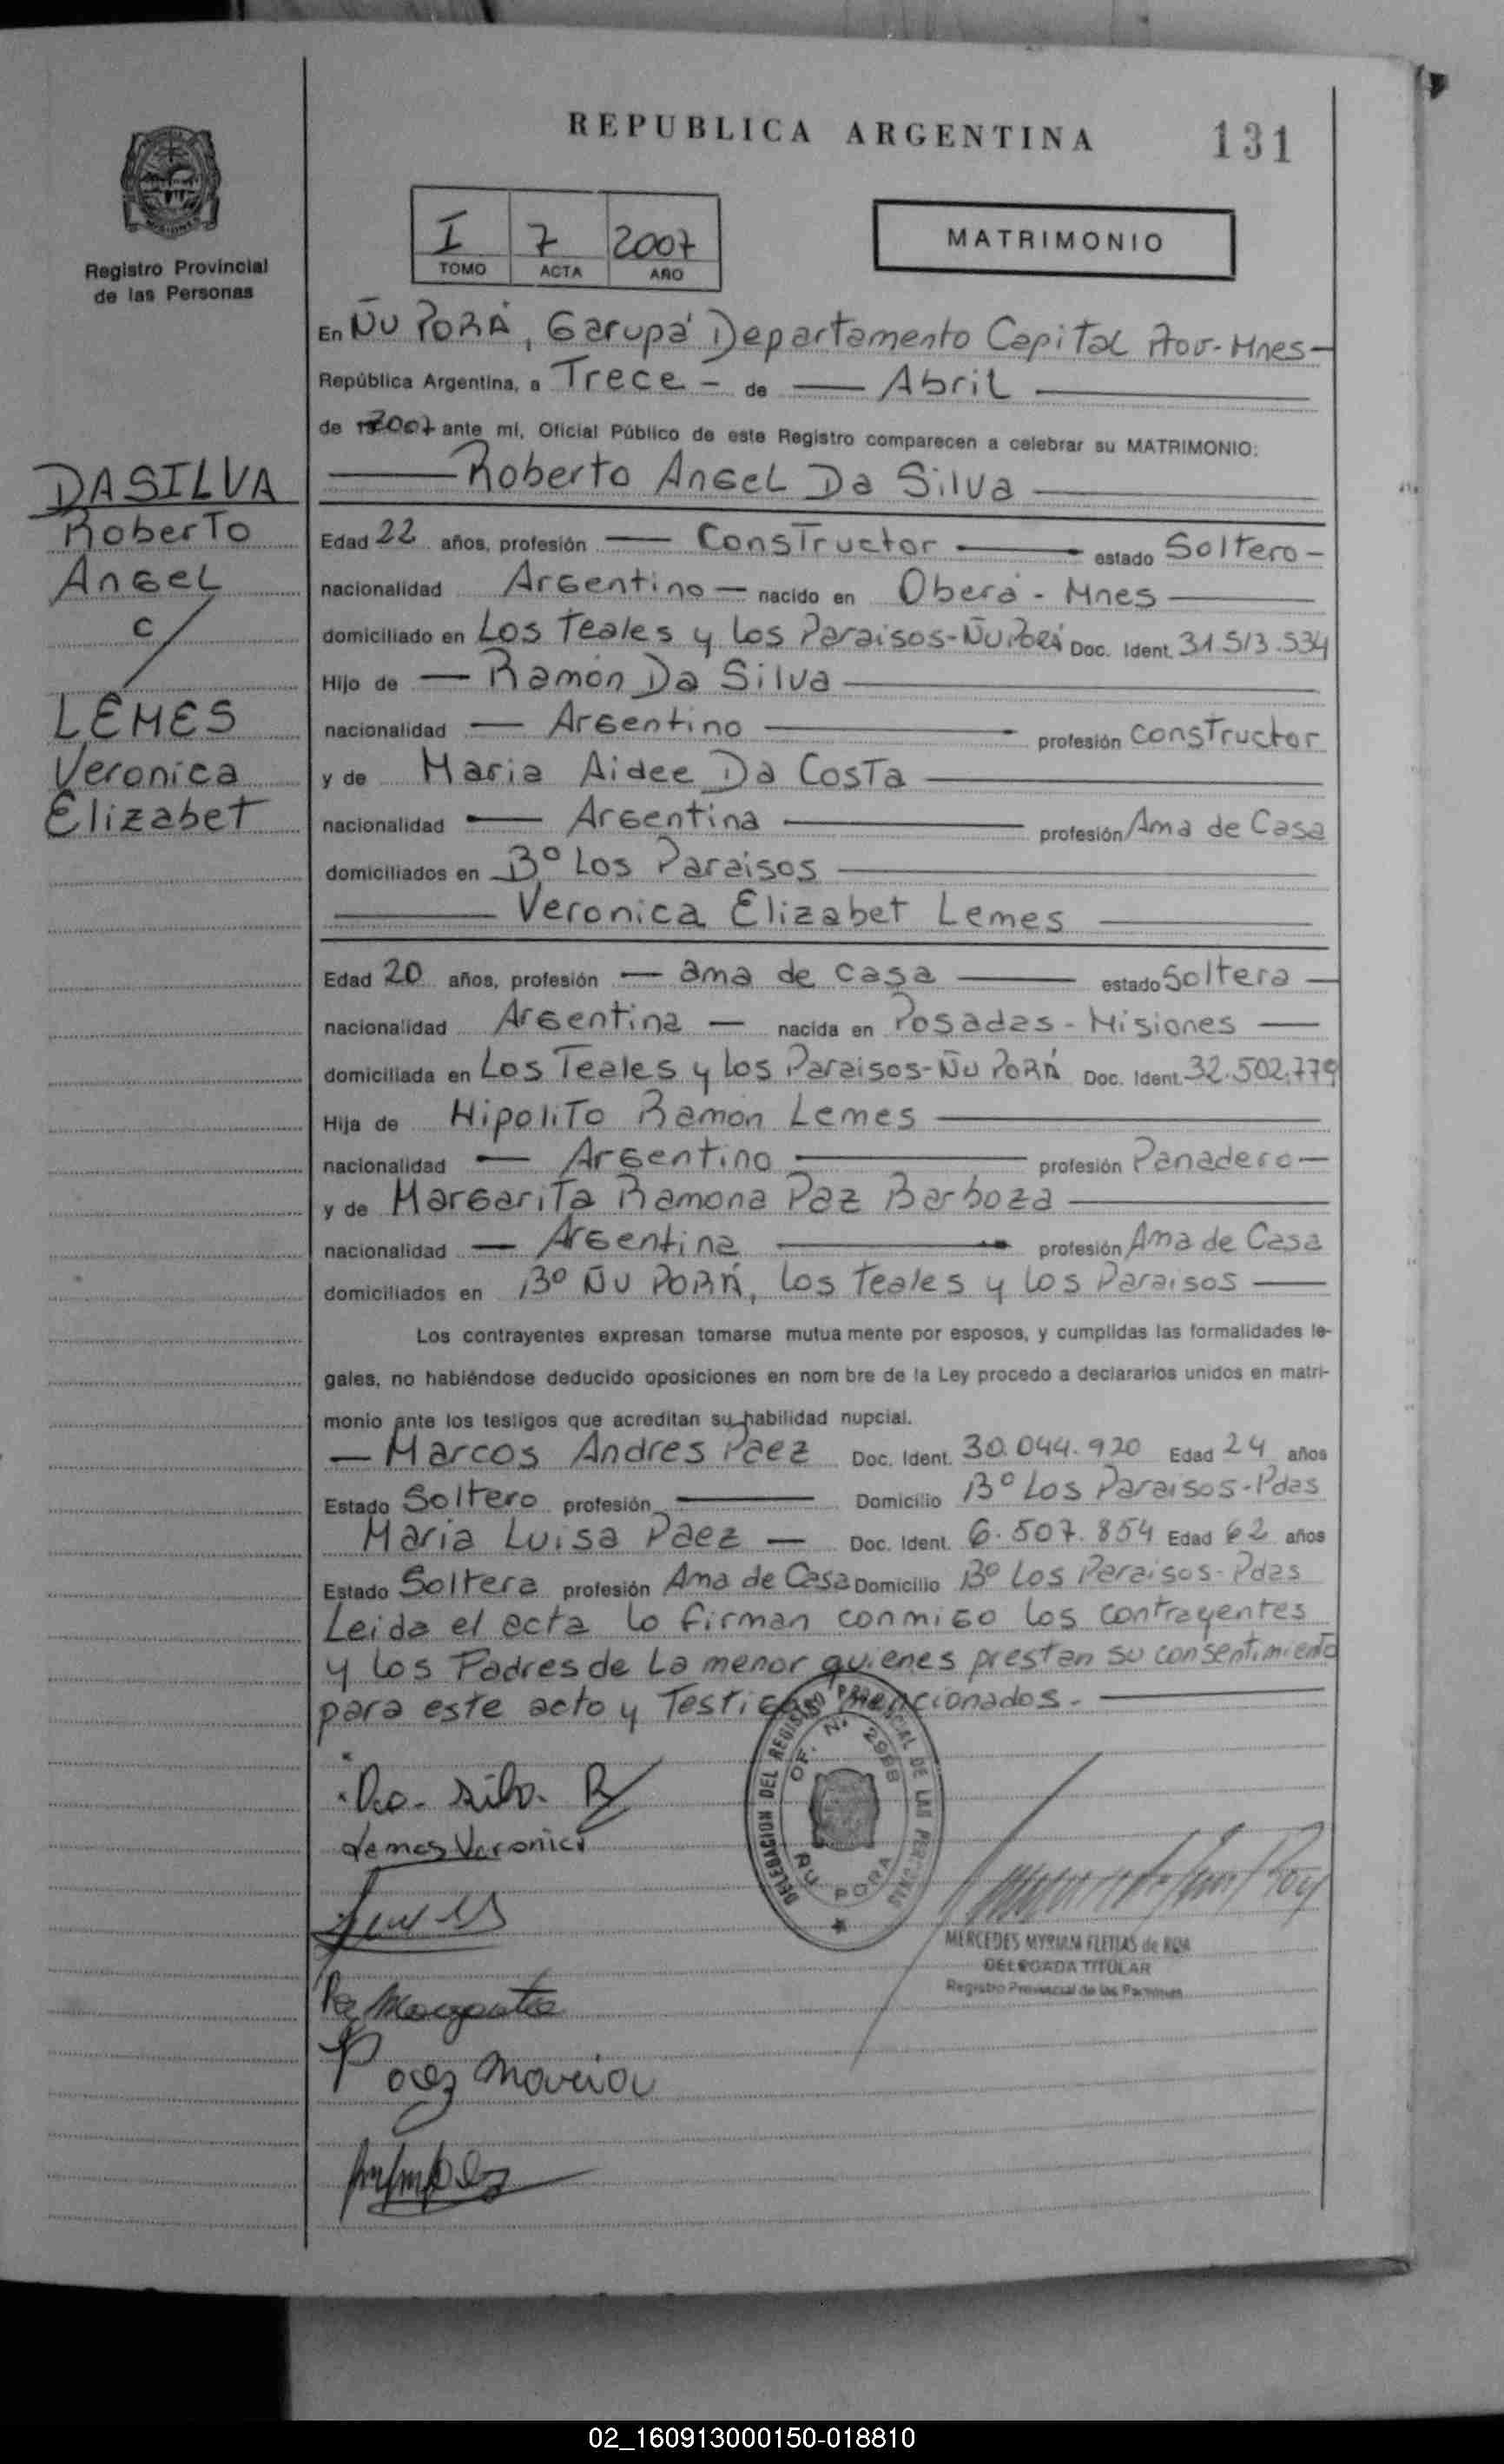 REPUBLICA ARGENTINA
131
Registro Provincial
de las Personas
I 7 2007
TOMO ACTA AÑO
MATRIMONIO
DASILVA
Roberto
Angel
c/
LEMES
Veronica
Elizabet
En ÑU PORÁ, Garupá Departamento Capital Prov-Mnes-
República Argentina, a Trece - de — Abril
de 2007 ante mí, Oficial Público de este Registro comparecen a celebrar su MATRIMONIO:
Roberto Angel Da Silva
Edad 22 años, profesión — Constructor — estado Soltero -
nacionalidad Argentino — nacido en Oberá - Mnes
domiciliado en Los Teales y los Paraisos-Ñu Porá Doc. Ident. 31.513.534
Hijo de — Ramón Da Silva
nacionalidad — Argentino — profesión constructor
y de Maria Aidee Da Costa
nacionalidad — Argentina — profesión Ama de Casa
domiciliados en B° Los Paraisos
Veronica Elizabet Lemes
Edad 20 años, profesión — ama de casa — estado Soltera —
nacionalidad Argentina — nacida en Posadas - Misiones —
domiciliada en Los Teales y los Paraisos-Ñu PORÁ Doc. Ident. 32.502.779
Hija de Hipolito Ramón Lemes
nacionalidad — Argentino — profesión Panadero —
y de Margarita Ramona Paz Barboza
nacionalidad — Argentina — profesión Ama de Casa
domiciliados en B° ÑU PORÁ, los Teales y los Paraisos —
Los contrayentes expresan tomarse mutua mente por esposos, y cumplidas las formalidades le-
gales, no habiéndose deducido oposiciones en nom bre de la Ley procedo a declararlos unidos en matri-
monio ante los testigos que acreditan su habilidad nupcial.
— Marcos Andres Paez Doc. Ident. 30.044.920 Edad 24 años
Estado Soltero profesión — Domicilio B° Los Paraisos-Pdas
Maria Luisa Paez — Doc. Ident. 6.507.854 Edad 62 años
Estado Soltera profesión Ama de Casa Domicilio B° Los Paraisos-Pdas
Leida el acta lo firman conmigo los contrayentes
y los Padres de la menor quienes prestan su consentimiento
para este acto y Testigos mencionados.
DELEGACION DEL REGISTRO PROVINCIAL DE LAS PERSONAS
OF. N. 2988
ÑU PORA
Da Silva R
Lemes Veronica
Lemes
Paz Margarita
Paez Maria
MERCEDES MYRIAM FLEITAS de ROA
DELEGADA TITULAR
Registro Provincial de las Personas
02_160913000150-018810